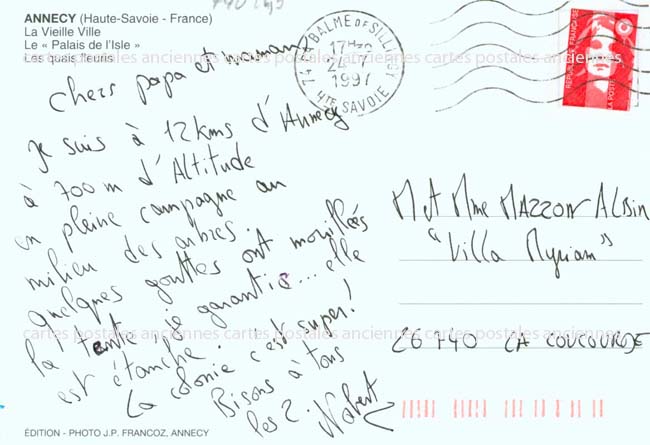 ANNECY (Haute-Savoie - France)
La Vieille Ville
Le « Palais de l'Isle »
Les quais fleuris
cartes postales anciennes cartes postales anciennes cartes postales anciennes
Chers papa et maman
Je suis à 12kms d'Annecy
à 700m d'Altitude
en pleine campagne au
milieu des arbres.
quelques gouttes ont mouillées
la tente, je garantie... elle
est étanche.
La colonie c'est super!
Bisons à tous
les 2. Norbert
74 LA BALME DE SILLINGY
17H
1997
HTE SAVOIE
REPUBLIQUE FRANÇAISE
LA POSTE
M et Mme MAZZON ALBIN
"Villa Myriam"
cartes postales anciennes cartes postales anciennes cartes postales anciennes
26740 LA COUCOURDE
ÉDITION - PHOTO J.P. FRANCOZ, ANNECY